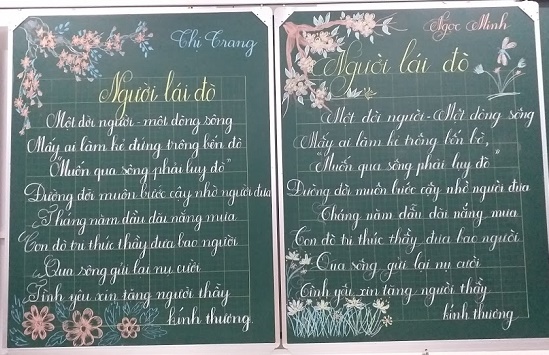 Thi Trang
Người lái đò
Một đời người - một dòng sông
Mấy ai làm kẻ đứng trông bến đò
"Muốn qua sông phải lụy đò"
Đường đời muôn bước cậy nhờ người đưa
Tháng năm dầu dãi nắng mưa
Con đò tri thức thầy đưa bao người
Qua sông gửi lại nụ cười
Tình yêu xin tặng người thầy
kính thương.
Ngọc Minh
Người lái đò
Một đời người - Một dòng sông
Mấy ai làm kẻ trông bến bờ,
"Muốn qua sông phải lụy đò"
Đường đời muôn bước cậy nhờ người đưa
Tháng năm dầu dãi nắng mưa
Con đò tri thức thầy đưa bao người
Qua sông gửi lại nụ cười
Tình yêu xin tặng người thầy
kính thương